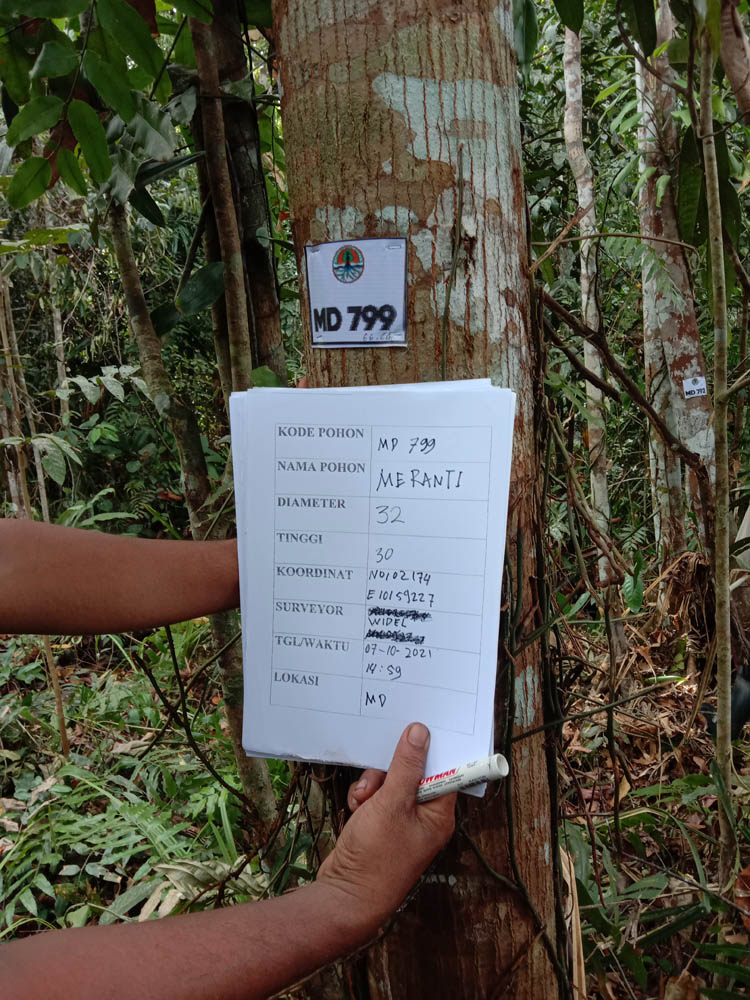 MD 799
KODE POHON MD 799
NAMA POHON MERANTI
DIAMETER 32
TINGGI 30
KOORDINAT N0102174
E10159227
SURVEYOR WIDEL
TGL/WAKTU 07-10-2021
14:59
LOKASI MD
OWMAN
MD 792